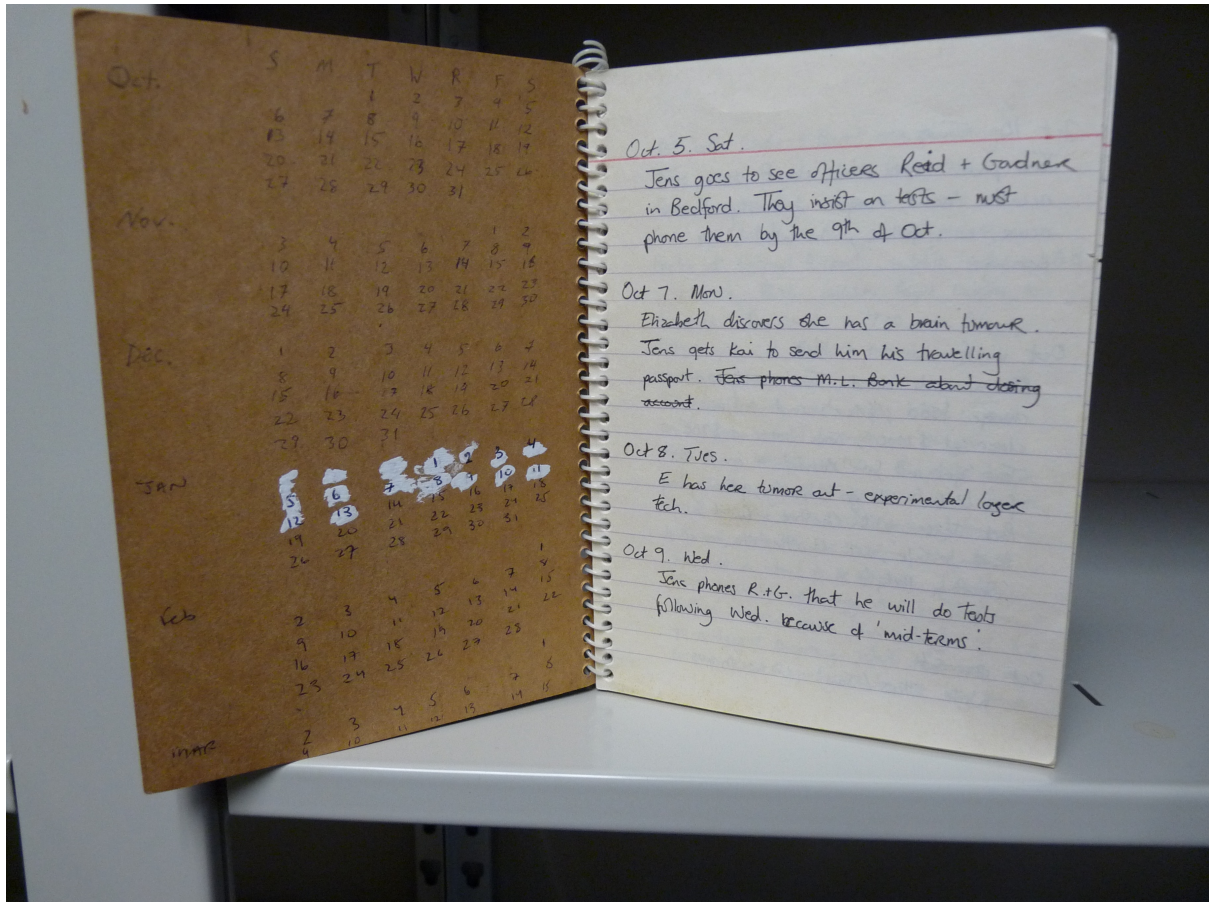 S M T W R F S
Oct.
1 2 3 4 5
6 7 8 9 10 11 12
13 14 15 16 17 18 19
20 21 22 23 24 25 26
27 28 29 30 31
Nov.
1 2
3 4 5 6 7 8 9
10 11 12 13 14 15 16
17 18 19 20 21 22 23
24 25 26 27 28 29 30
Dec.
1 2 3 4 5 6 7
8 9 10 11 12 13 14
15 16 17 18 19 20 21
22 23 24 25 26 27 28
29 30 31
JAN
1 2 3 4
5 6 7 8 9 10 11
12 13 14 15 16 17 18
19 20 21 22 23 24 25
26 27 28 29 30 31
Feb
1
2 3 4 5 6 7 8
9 10 11 12 13 14 15
16 17 18 19 20 21 22
23 24 25 26 27 28
MAR
1
2 3 4 5 6 7 8
9 10 11 12 13 14 15
Oct. 5. Sat.
Jens goes to see officers Reid + Gardner
in Bedford. They insist on tests – must
phone them by the 9th of Oct.
Oct 7. Mon.
Elizabeth discovers she has a brain tumour.
Jens gets Kai to send him his travelling
passport. Jens phones M.L. Bank about closing
account.
Oct 8. Tues.
E has her tumor out – experimental lazer
tech.
Oct 9. Wed.
Jens phones R.+G. that he will do tests
following Wed. because of 'mid-terms'.